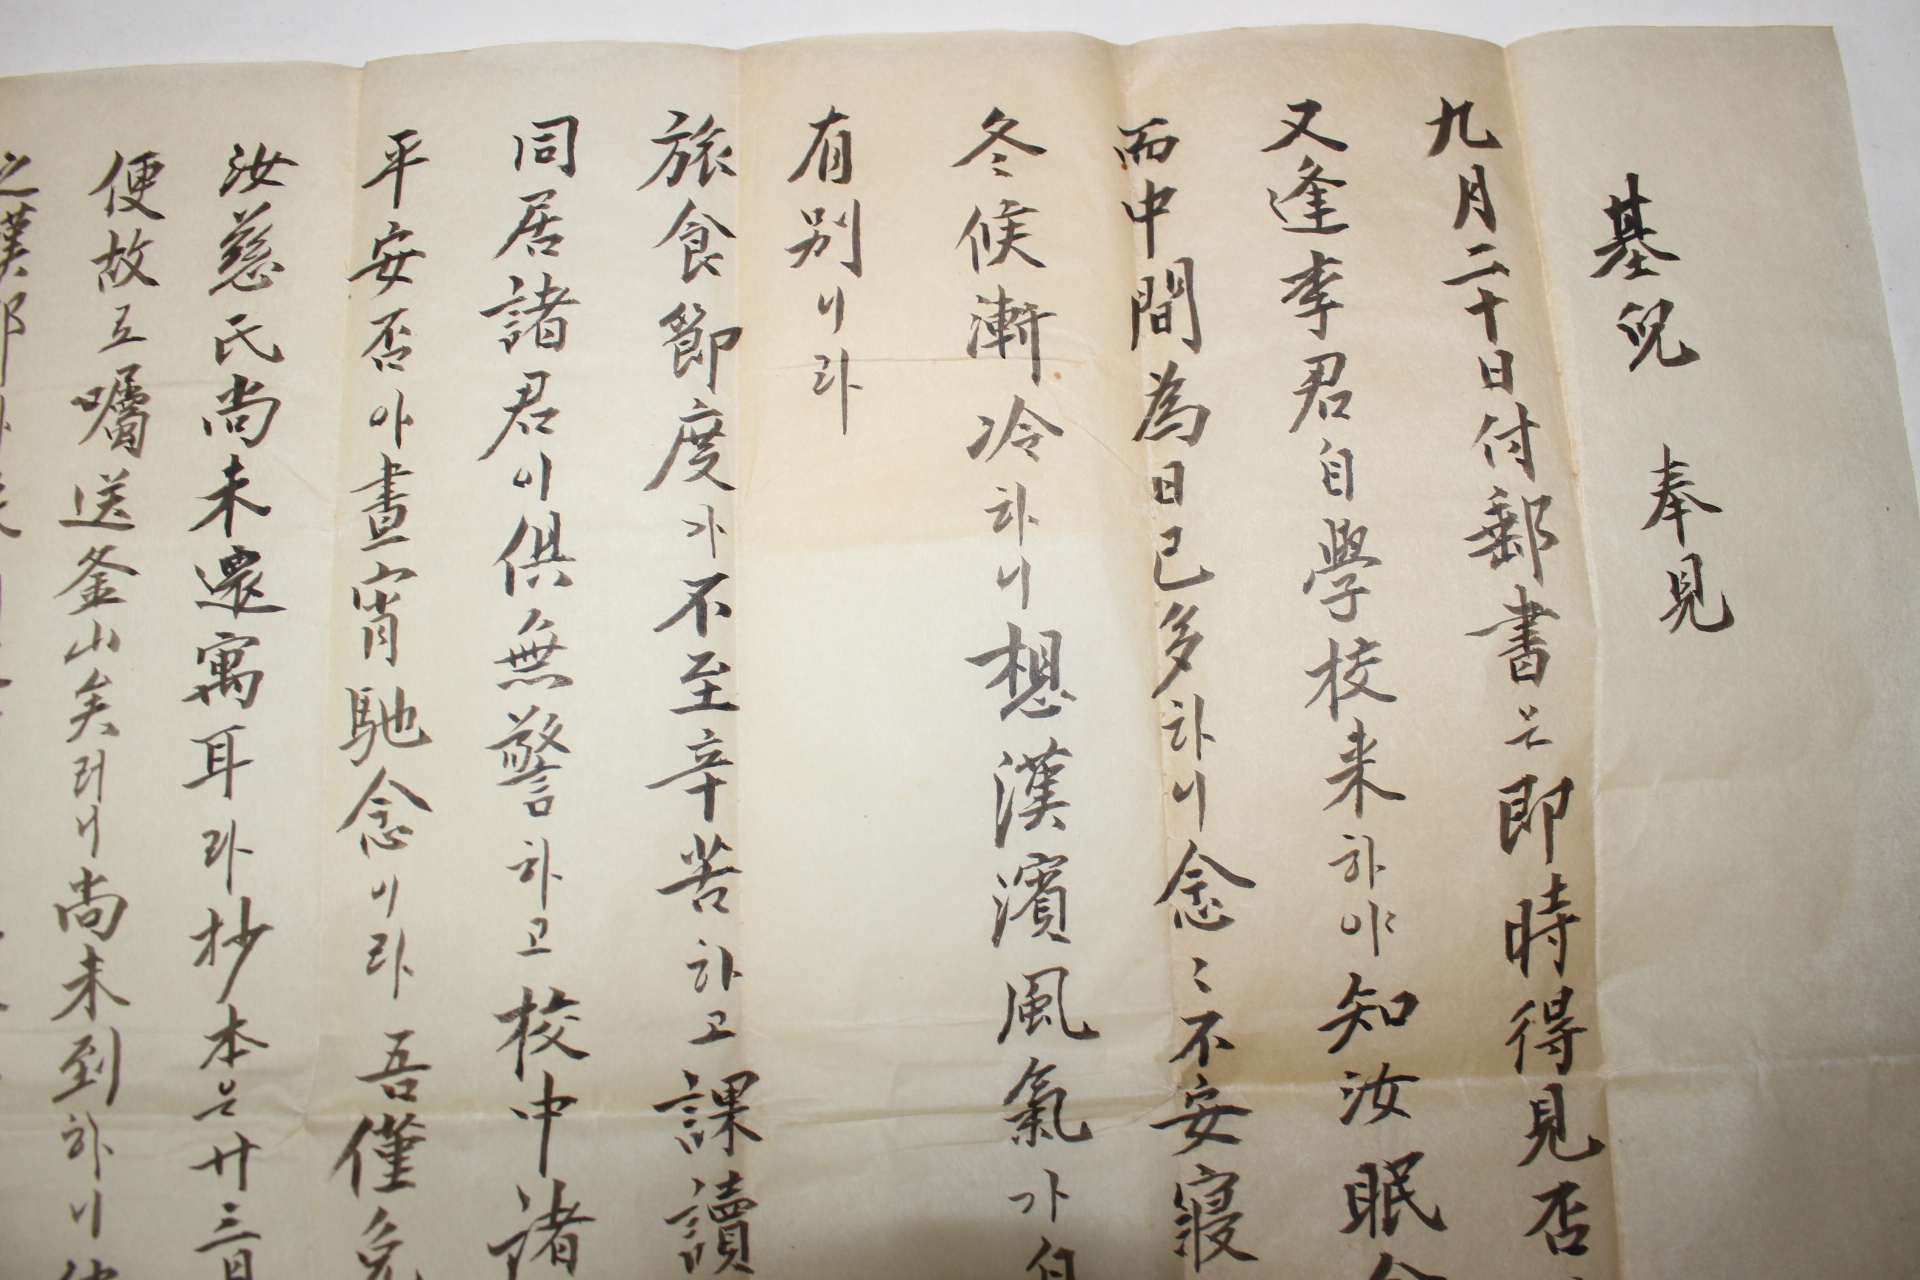 基兒 奉見
九月二十日付郵書는即時得見否
又逢李君自學校来하야知汝眠食
而中間為日已多하니念〻不安寢
冬候漸冷하니想漢濱風氣가自
有別이라
旅食節度가不至辛苦하고課讀
同居諸君이俱無警하고校中諸
平安否아晝宵馳念이라吾僅免
汝慈氏尚未還寓耳라抄本은廿三日
便故로囑送釜山矣러니尚未到하니
之漢郵